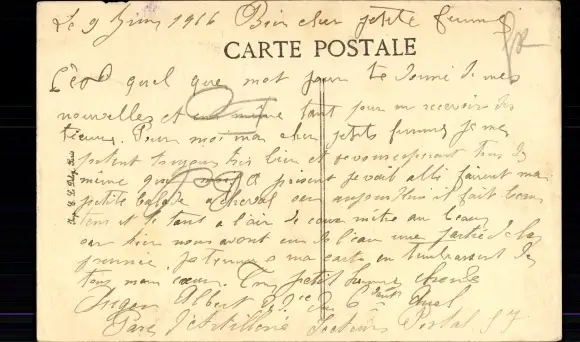 Le 9 Juin 1916 Bien cher petite femme
CARTE POSTALE
quel que mot pour te donné de mes
nouvelles et en même tant pour en recevoir des
tienne. Pour moi ma cher petite femme je me
portent toujours très bien et je vous espérant tous de
même que moi. A présent je vait allé fairent ma
petite balade a cheval car aujourd'huis il fait beau
tens et le tant a l'air de ce mètre au beau
car hier nous avont eu de l'eau une partie de la
journée. Je termine ma carte en tembrassent de
tous mon cœur. Ton petit homme
Albert 22e du 6e
Parc d'Artillerie Secteur Postal 57